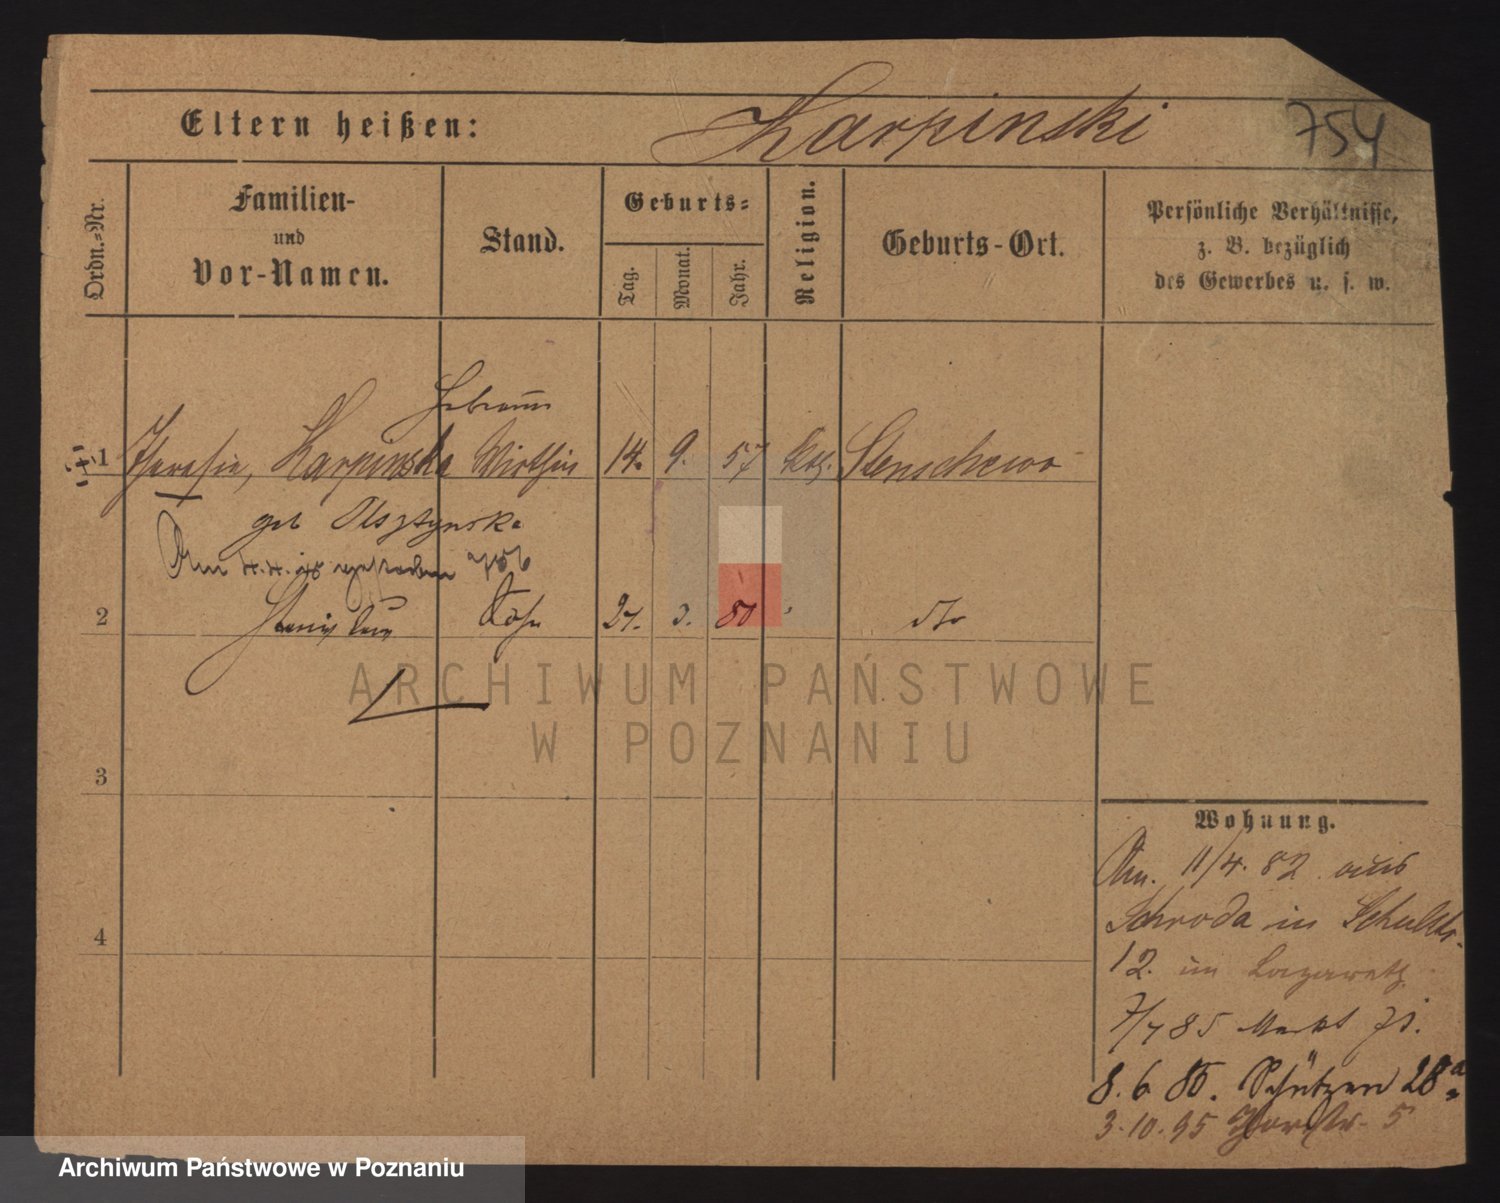 Eltern heißen: Karpinski 754
Ordn.-Nr.
Familien-
und
Vor-Namen.
Stand.
Geburts-
Tag. Monat. Jahr.
Religion.
Geburts-Ort.
Persönliche Verhältnisse,
z. B. bezüglich
des Gewerbes u. s. w.
1 Theresie, Karpinska Wirthin 14. 9. 57 kth. Stenschewo
geb Olsztynska
gestorben
2 Stanislaus Sohn 3. 80 dto
3
4
Wohnung.
An. 11/4. 82 aus
Schroda in Schulstr.
12. im Lazareth
7/7 85 Markt
8. 6. Schützen 28a
3. 10. 95 5
ARCHIWUM PAŃSTWOWE
W POZNANIU
Archiwum Państwowe w Poznaniu